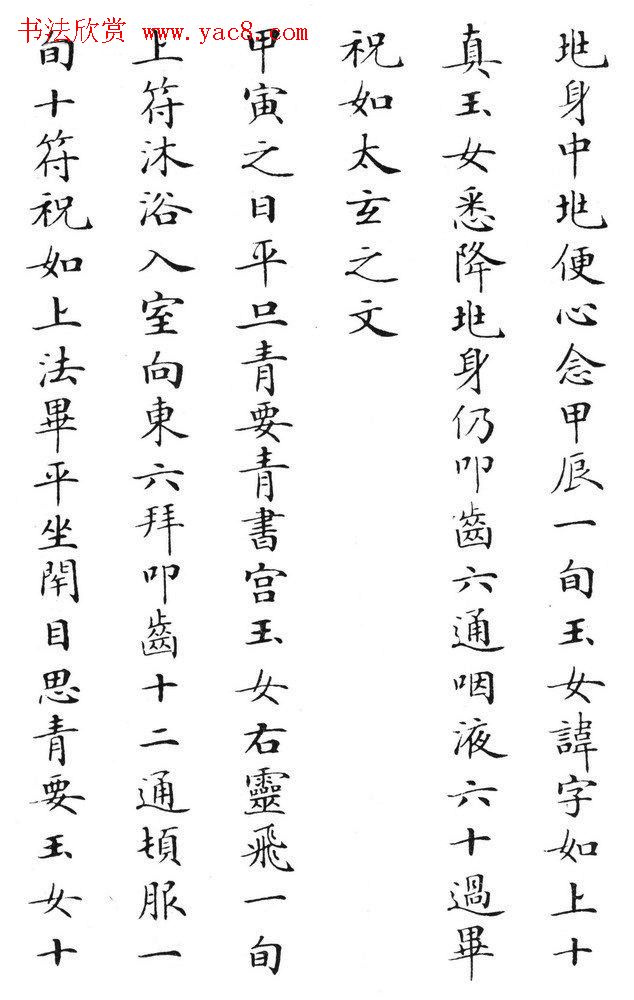 书法欣赏 www.yac8.com
𡊄身中𡊄便心念甲辰一旬玉女諱字如上十
真玉女悉降𡊄身仍叩齒六通咽液六十過畢
祝如太玄之文
甲寅之日平旦青要青書宮玉女右靈飛一旬
上符沐浴入室向東六拜叩齒十二通頓服一
旬十符祝如上法畢平坐閉目思青要玉女十